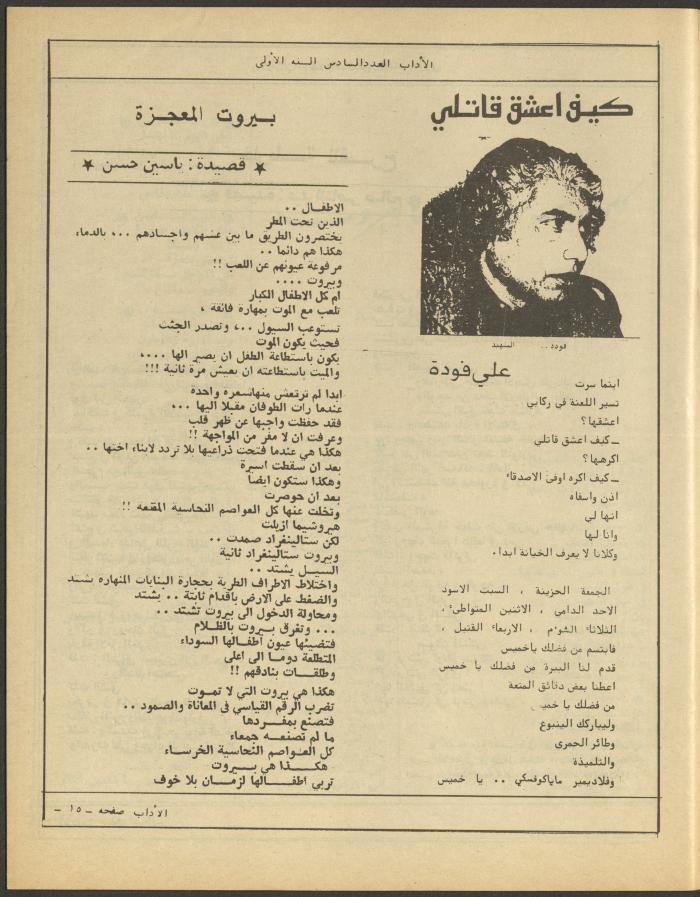 الآداب العدد السادس السنه الاولى
كيف اعشق قاتلي
فودة .. الشهيد
علي فودة
اينما سرت
تسير اللعنة في ركابي
اعشقها؟
ــ كيف اعشق قاتلي
اكرهها؟
ــ كيف اكره اوفى الاصدقاء
اذن واسفاه
انها لي
وانا لها
وكلانا لا يعرف الخيانة ابدا.
الجمعة الحزينة ، السبت الاسود
الاحد الدامي ، الاثنين المتواطىء،
الثلاثاء الشؤم ، الاربعاء القتيل ،
فابتسم من فضلك ياخميس
قدم لنا البيرة من فضلك يا خميس
اعطنا بعض دقائق المتعة
من فضلك يا خميس
وليباركك الينبوع
وطائر الحمرى
والتلميذة
وفلاديمير ماياكوفسكي .. يا خميس
بيروت المعجزة
★ قصيدة : ياسين حسن ★
الاطفال ..
الذين تحت المطر
يختصرون الطريق ما بين عشبهم واجسادهم ..، بالدماء
هكذا هم دائما ..
مرفوعة عيونهم عن اللعب !!
وبيروت ....
ام كل الاطفال الكبار
تلعب مع الموت بمهارة فائقة ،
تستوعب السيول ..، وتصدر الجثث
فحيث يكون الموت
يكون باستطاعة الطفل ان يصير الها ...،
والميت باستطاعته ان يعيش مرة ثانية !!!
ابدا لم ترتعش منهاشعره واحدة
عندما رات الطوفان مقبلا اليها ...
فقد حفظت واجبها عن ظهر قلب
وعرفت ان لا مفر من المواجهة !!
هكذا هي عندما فتحت ذراعيها بلا تردد لابناء اختها ..
بعد ان سقطت اسيرة
وهكذا ستكون ايضا
بعد ان حوصرت
وتخلت عنها كل العواصم النحاسية المقنعة !!
هيروشيما ازيلت
لكن ستالينغراد صمدت ..
وبيروت ستالينغراد ثانية
السيل يشتد ..
واختلاط الاطراف الطرية بحجارة البنايات المنهاره يشتد
والضغط على الارض باقدام ثابتة .. يشتد
ومحاولة الدخول الى بيروت تشتد ..
... وتغرق بيروت بالظلام
فتضيئها عيون اطفالها السوداء
المتطلعة دوما الى اعلى
وطلقات بنادقهم !!
هكذا هي بيروت التي لا تموت
تضرب الرقم القياسي في المعاناة والصمود ..
فتصنع بمفردها
ما لم تصنعه جمعاء
كل العواصم النحاسية الخرساء
هكذا هي بيروت
تربي اطفالها لزمان بلا خوف
الآداب صفحه ــ ١٥ ــ